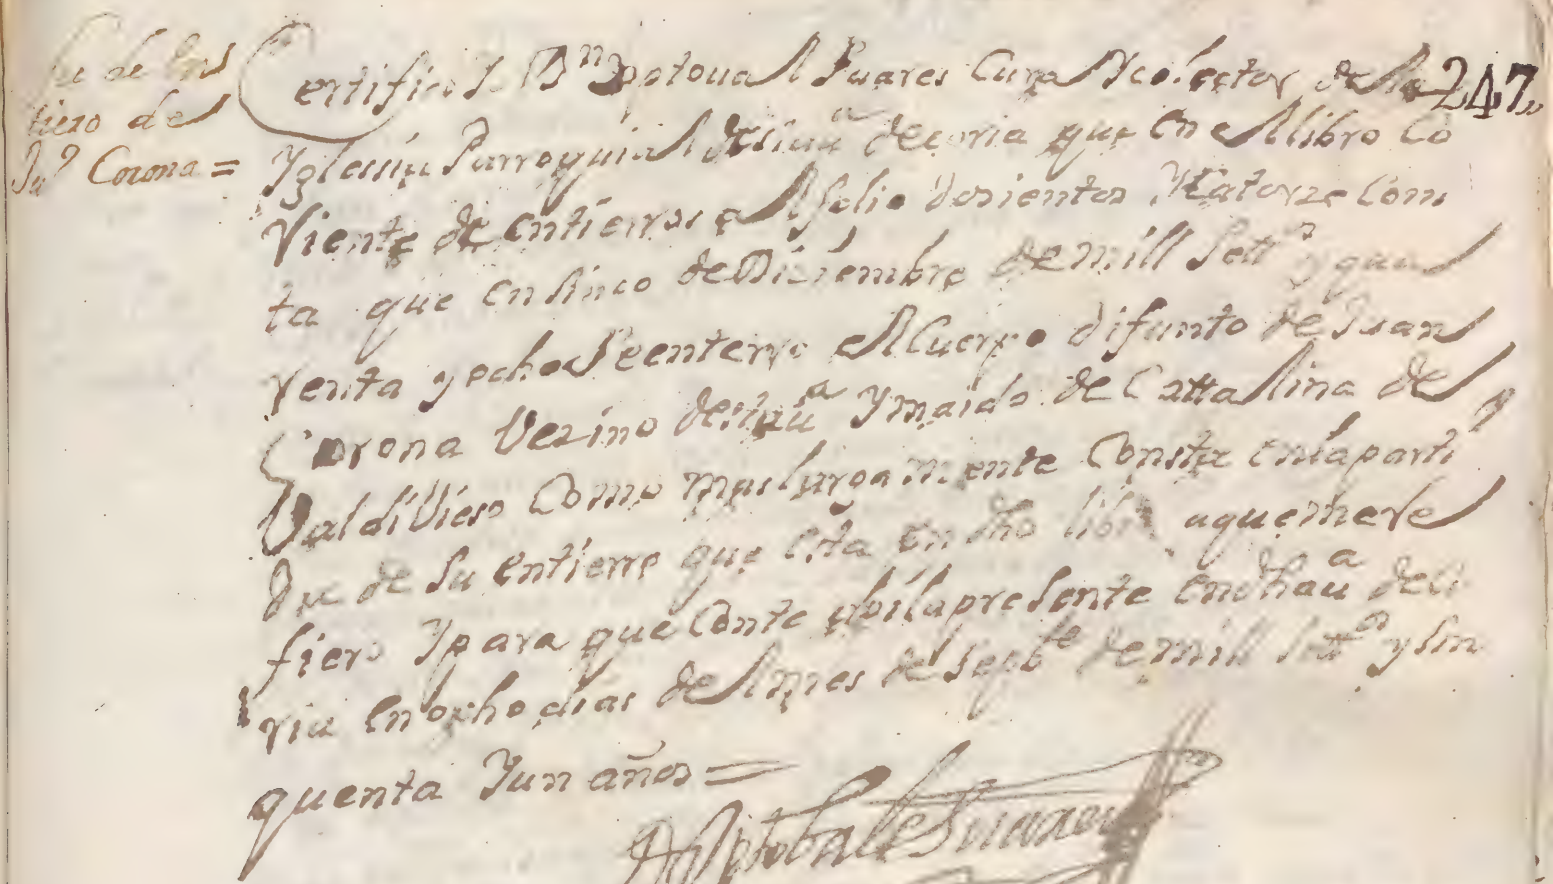 fee de En
tiero de
Juº Corona =
247
Certifico Yo Bn Xptoual Suares Cura Y colector de la
Yglesia Parroquial desta uª de coria que en el libro Co
rriente de entierros al folio dosientos Y Catorze Cons
ta que en sinco de Disiembre de mill settos y qua
renta y ocho se enterro el Cuerpo difunto de Juan
Corona Vezino desta uª Y marido de Cattalina de
Valdivieso Como mas largamente Consta en la parti
da de su entierro que esta en dho libro a que me re
fiero Y para que Conte di la presente en dha uª de Co
ria en ocho dias del mes de Sepbe de mill settos y sin
quenta Y un años =
Xptobal Suares